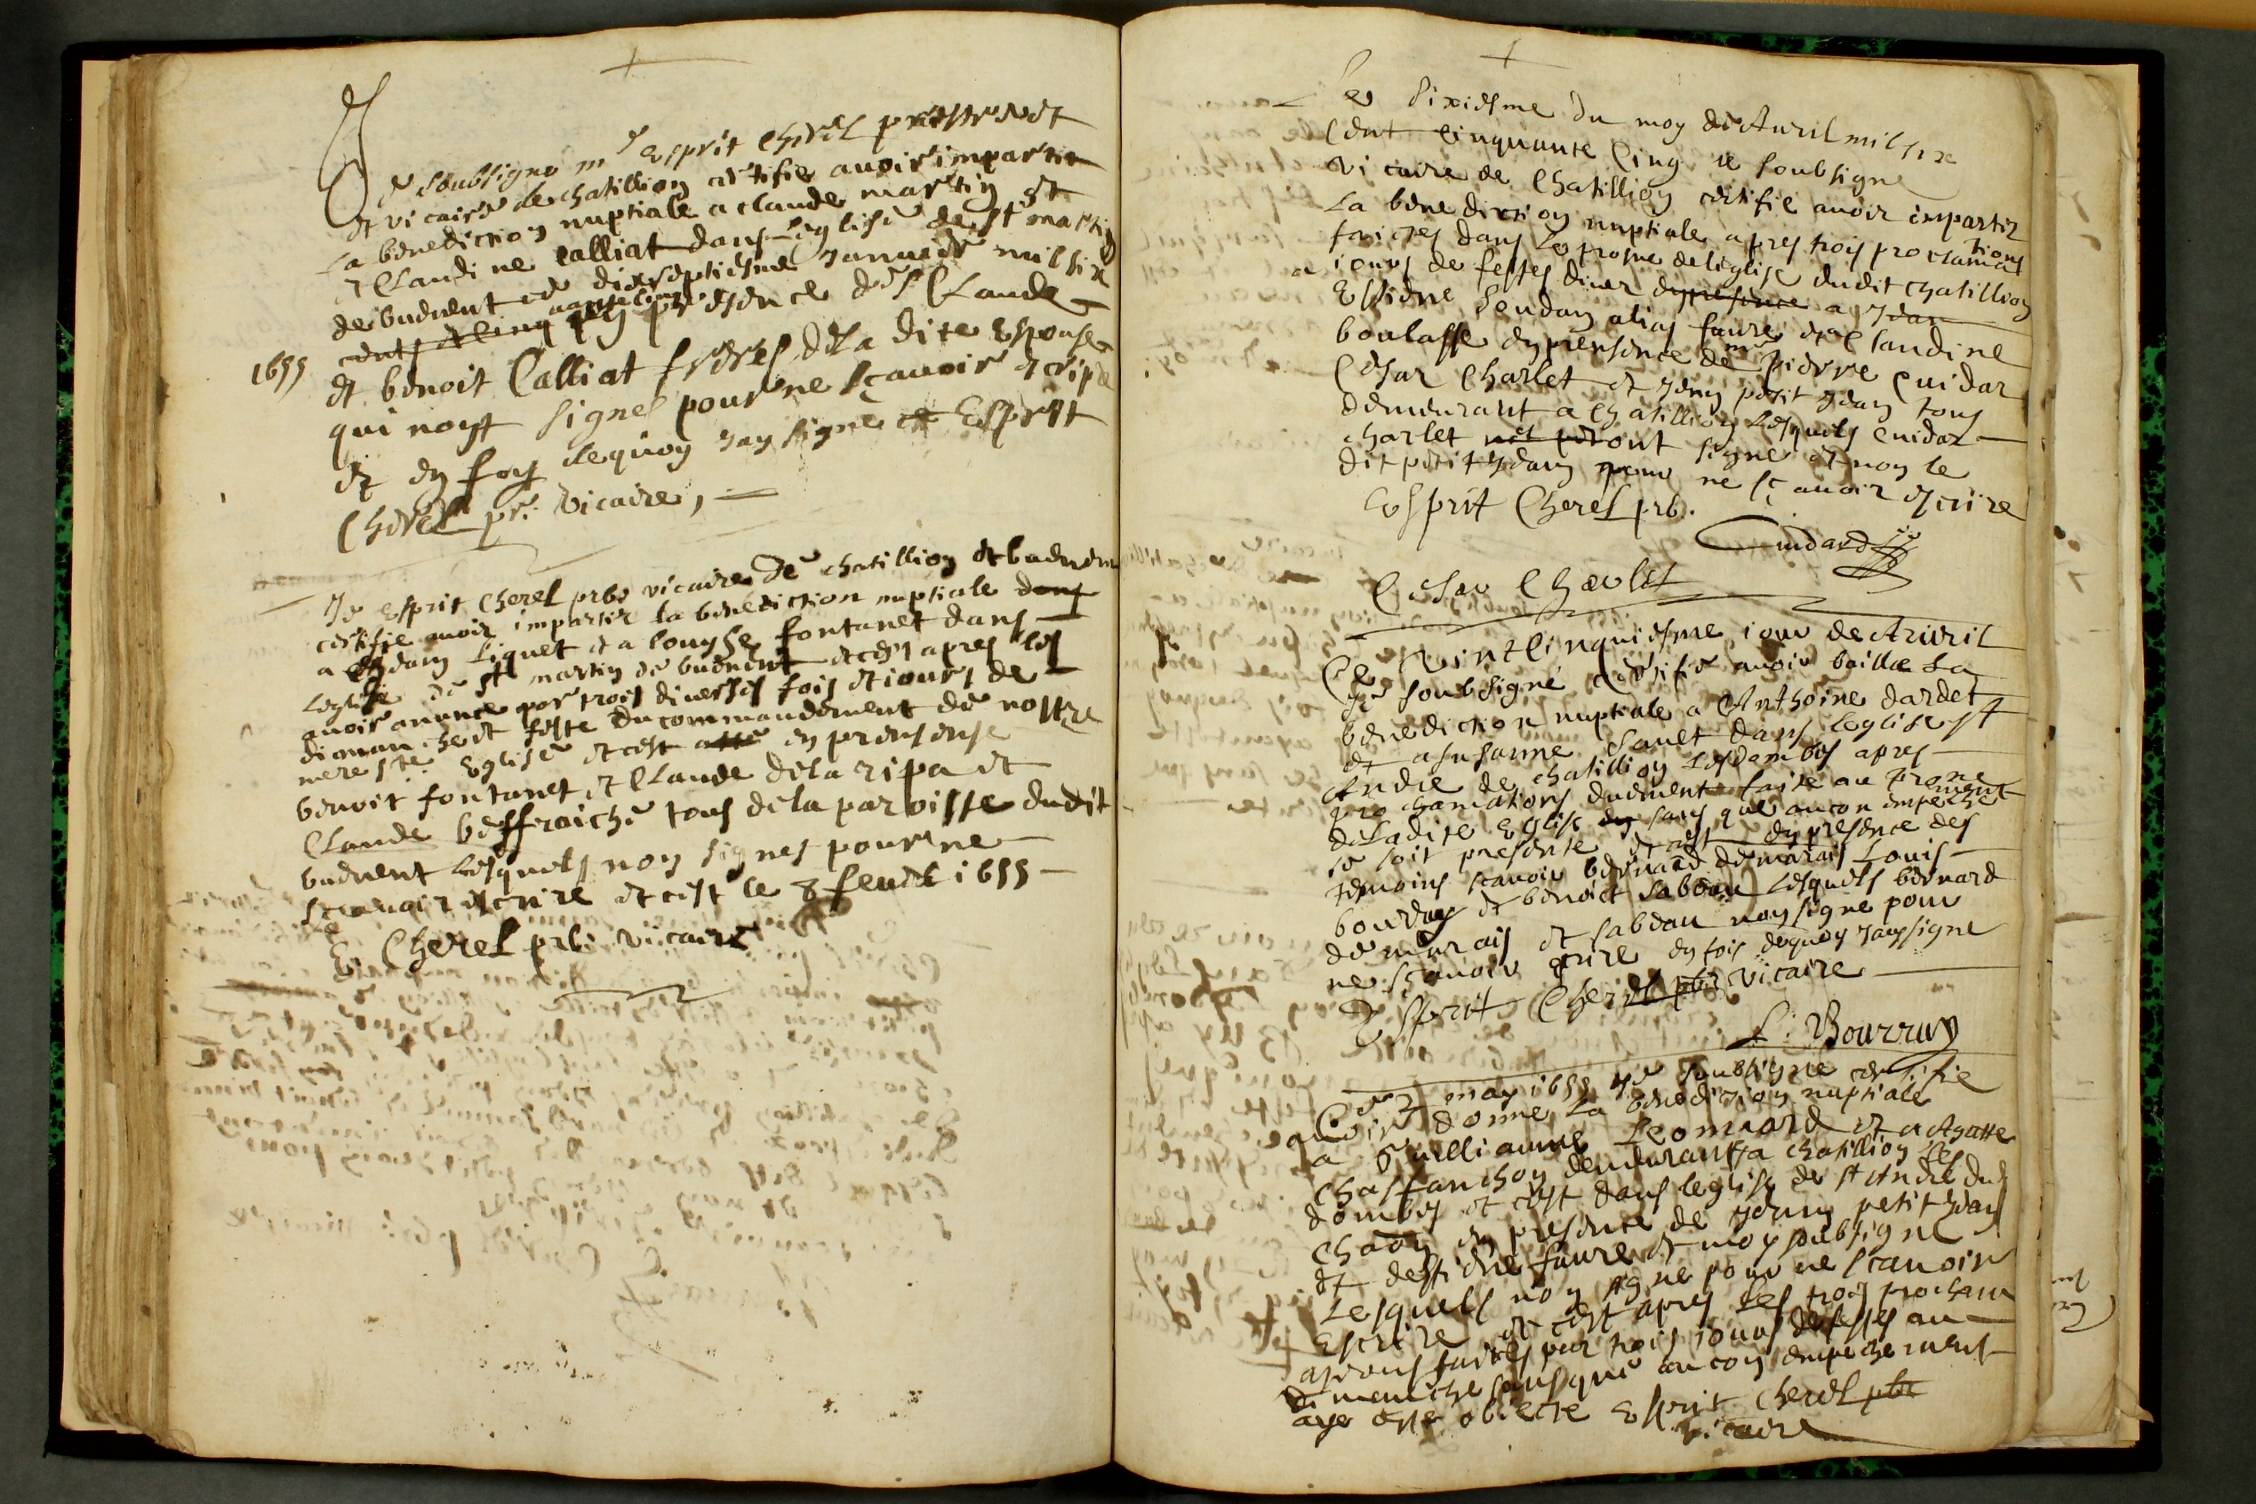 Je soubsigne mre esprit Cherel prestre et
et vicaire de chatillion certifie avoir impartir
la benediction nuptiale a claude martin et
a Claudine Calliat dans leglise de st martin
de buenent ce dixseptiesme Janvier mil six
cents cinquante cinq en presence des Claude
1655
et benoit Calliat freres de la dite Espouse
qui nont signes pour ne sçavoir escripre
et en foy dequoy jay signe Esprit
Cherel pr: vicaire,
Je esprit Cherel prbs vicaire de chatillion et buenent
certifie avoir impartir la benediction nuptiale
a Liquet et a louyse fontanet dans
Leglise de st martin de buenent et cest apres les
avoir anonce par trois diverses fois et jours de
dimanche et feste du commandement de nostre
mere ste Eglise et cest en presense
benoit fontanet, et Claude dela ripa et
Claude beffraiche tous de la paroisse dudit
buenent Lesquels non signes pour ne
scavoir escrire et cest le 8 feuve 1655
E. Cherel prb: vicaire
Le sixiesme du moy de Avril mil six
Cent Cinquante Cinq je soubsigne
vicaire de Chatillion certifie avoir impartir
La benediction nuptiale apres trois proclamations
faictes dans le prosne de leglise dudit chatillion
jours de festes divers en presence a
Estiene Jendan alias faure et a Claudine
boulasse en presence de mre pierre Cuidar
Cesar Charlet et petit Jean tous
demeurant a Chatillion Lesquels Cuidar
charlet ont signe et non le
dit petit Jean pour ne sçavoir escrire
Esprit Cherel prb.
Cuidard
Cesar Charlet
Ce vintcinquiesme jour de Avril
Je soubsigné certifie avoir baillé la
benediction nuptiale a Anthoine dardet
et a susanne Sanet dans leglise st
Andre de chatillion Lesdombes apres
proclamations duement faite au prone
de Ladite Eglise sans que aucon empechement
se soit presente et cest en presence des
temoins scavoir bernard demarais Louis
bourruy et benoict sabeau Lesquels bernard
demarais et sabeau non signe pour
ne sçavoir escrire en fois dequoy jay signe
Esprit Cherel pbr vicaire
L. Bourruy
Ce may 1655 Je soubsigne certifie
avoir donne La benediction nuptiale
a Guilliaume Leonnard et a Agatte
Chaffanchon demeurant a chatillion les
dombes et cest dans leglise de st Andre dud
Chaon en presence de petit Jean
et destiene faure et moy soubsigne
Lesquels non signe pour ne scavoir
Escrire et cest apres les trois proclam
ations faites par trois jours de festes au
dimanche sans que aucon empechement
aye este obiecte Esprit Cherel pbr
vicaire